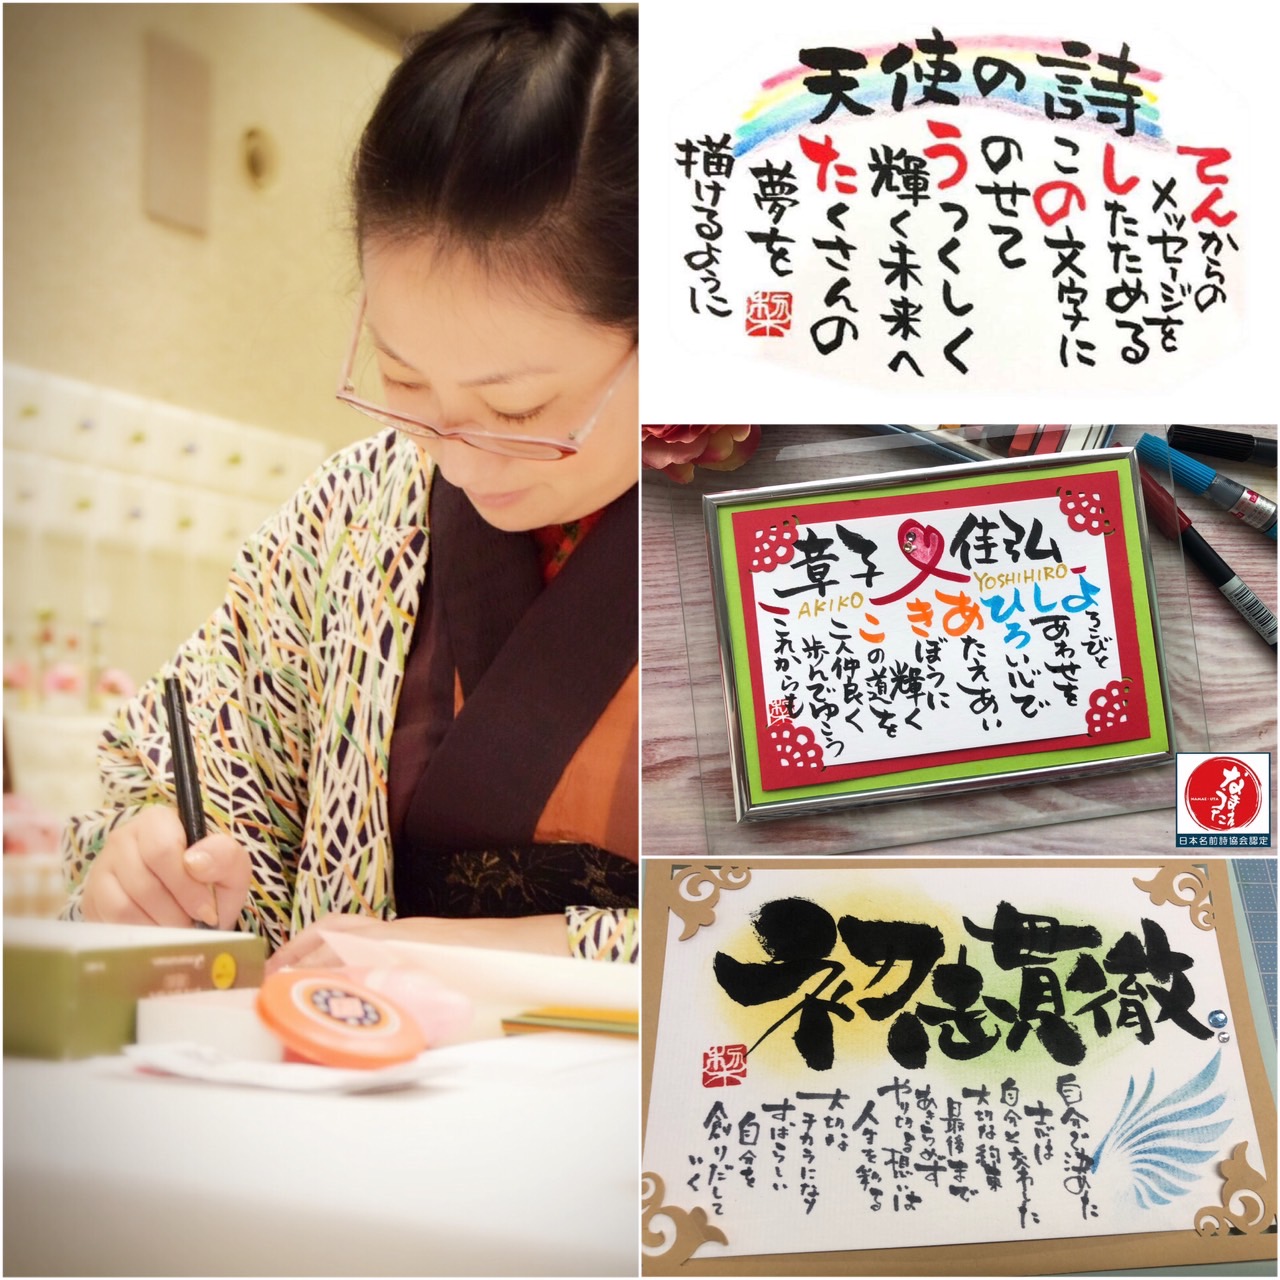 天使の詩
てんからの
メッセージを
したためる
この文字に
のせて
うつくしく
輝く未来へ
たくさんの
夢を
描けるように
章子 佳弘
AKIKO YOSHIHIRO
よろこびと
しあわせを
ひろい心で
あたえあい
きぼうに
輝く
この道を
二人仲良く
歩んでゆこう
これからも
なまえうた
NAMAE-UTA
日本名前詩協会認定
初志貫徹
自分で決めた
志は
自分と交わした
大切な約束
最後まで
あきらめず
やり切る想いは
人生を彩る
大切な
チカラになり
すばらしい
自分を
創りだして
いく